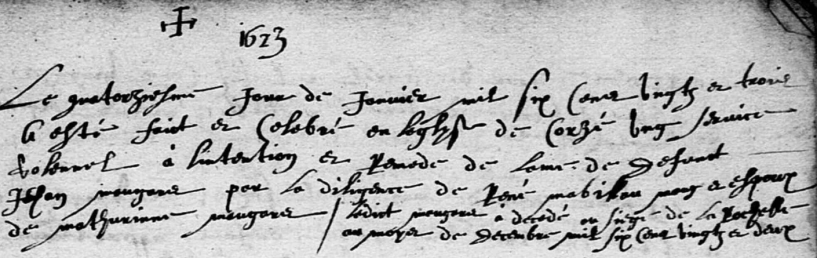 1623
Le quatorziesme Jour de Janvier mil six Cens vingtz et trois
A esté faict et Celebré en leglyse de Corzé ung service
sollennel à lintention et Remede de lame de defunt
Jehan mengars par la diligence de René mabilleau mary et espoux
de mathurinne mengars / ledict mengars a decedé au siege de la Rochelle
au moys de decembre mil six Cens vingtz et deux